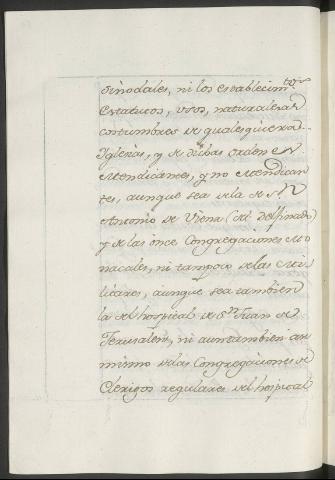 sinodales, ni los establecim.tos
estatutos, usos, naturalezas
costumbres de qualesquiera
Iglesias, y de dhãs ordenes
Mendicantes, y no Mendican
tes, aunque sea de la de S.n
Antonio de Viena
y de las once Congregaciones Mo
nacales, ni tampoco de las Mi
litares, aunque sea tambien
la del hospital de S.n Juan de
Jerusalem, ni aun tambien as
mismo de las Congregaciones de
Clerigos regulares del hospital